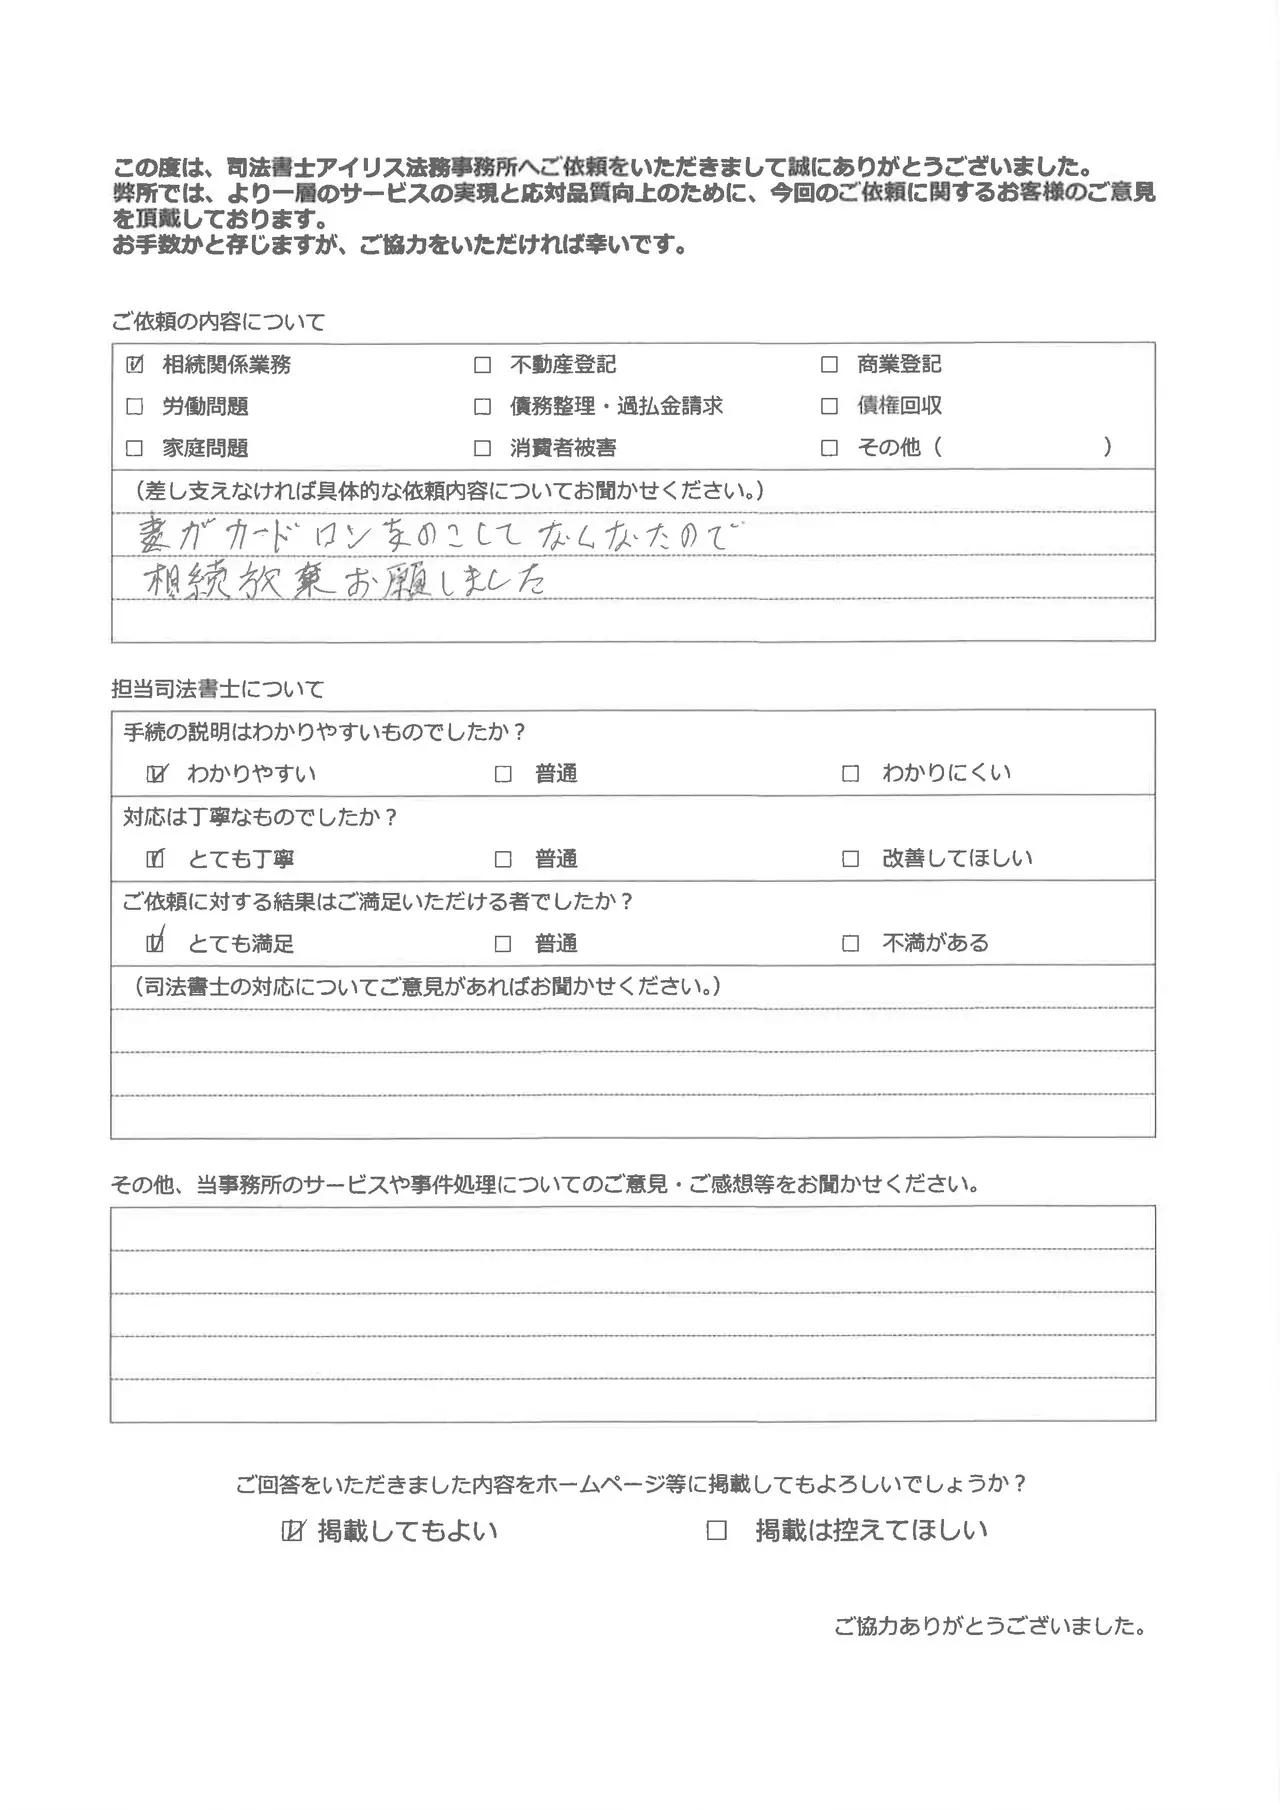 この度は、司法書士アイリス法務事務所へご依頼をいただきまして誠にありがとうございました。
弊所では、より一層のサービスの実現と応対品質向上のために、今回のご依頼に関するお客様のご意見
を頂戴しております。
お手数かと存じますが、ご協力をいただければ幸いです。
ご依頼の内容について
☑ 相続関係業務 □ 不動産登記 □ 商業登記
□ 労働問題 □ 債務整理・過払金請求 □ 債権回収
□ 家庭問題 □ 消費者被害 □ その他（ ）
（差し支えなければ具体的な依頼内容についてお聞かせください。）
妻がカードロンをのこしてなくなたので
相続放棄お願しました
担当司法書士について
手続の説明はわかりやすいものでしたか？
☑ わかりやすい □ 普通 □ わかりにくい
対応は丁寧なものでしたか？
☑ とても丁寧 □ 普通 □ 改善してほしい
ご依頼に対する結果はご満足いただける者でしたか？
☑ とても満足 □ 普通 □ 不満がある
（司法書士の対応についてご意見があればお聞かせください。）
その他、当事務所のサービスや事件処理についてのご意見・ご感想等をお聞かせください。
ご回答をいただきました内容をホームページ等に掲載してもよろしいでしょうか？
☑ 掲載してもよい □ 掲載は控えてほしい
ご協力ありがとうございました。